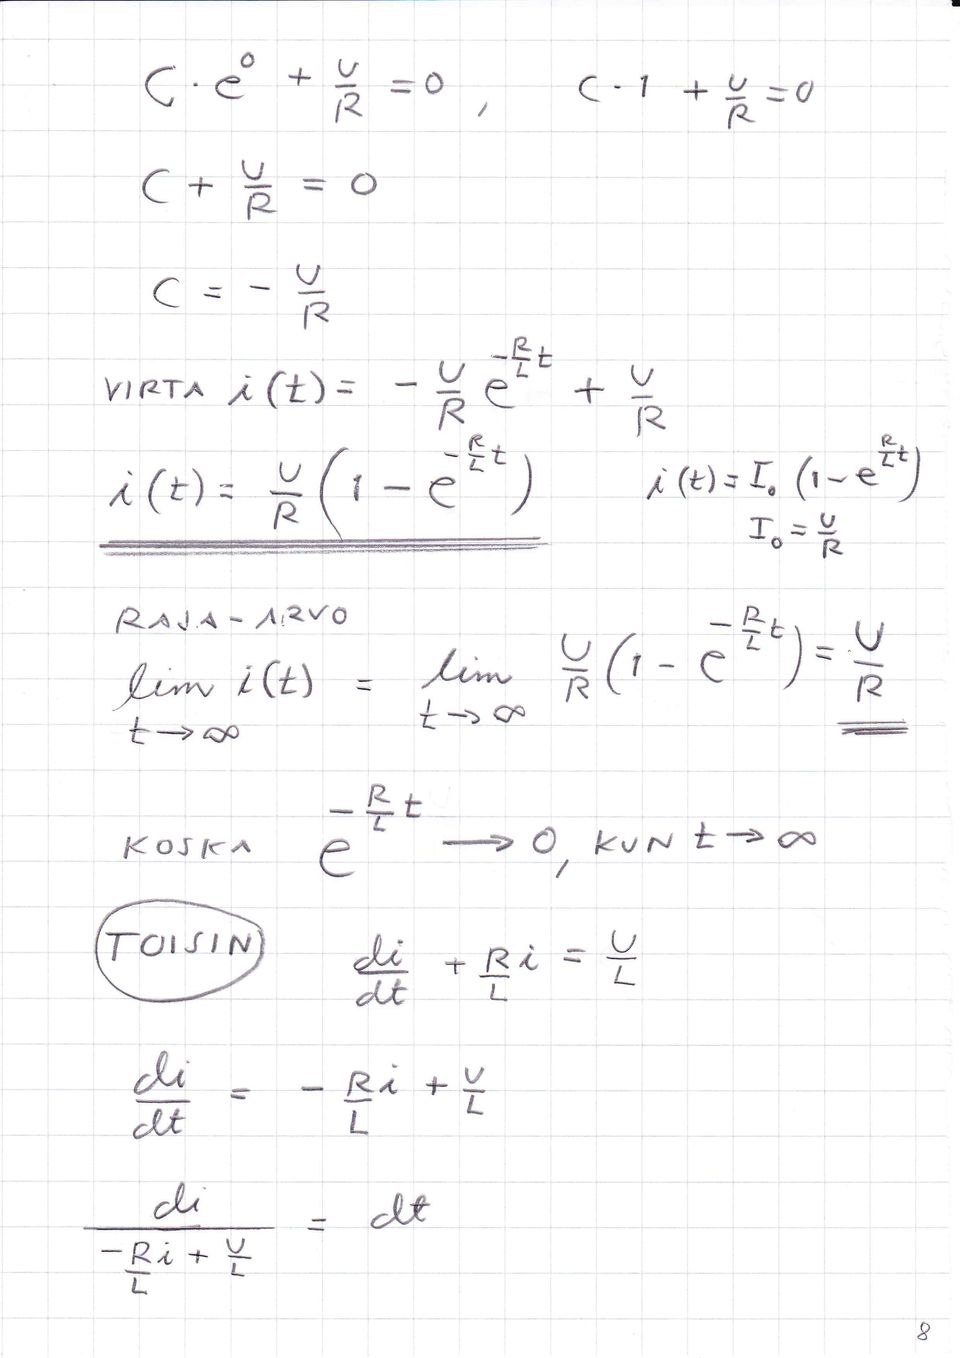 C · e^0 + U/R = 0 , C · 1 + U/R = 0
C + U/R = 0
C = - U/R
VIRTA i(t) = - U/R e^(-R/L t) + U/R
i(t) = U/R (1 - e^(-R/L t)) i(t) = I₀ (1 - e^(R/L t))
I₀ = U/R
RAJA-ARVO
lim i(t) = lim U/R (1 - e^(-R/L t)) = U/R
t→∞ t→∞
KOSKA e^(-R/L t) → 0, KUN t → ∞
TOISIN di/dt + R/L i = U/L
di/dt = - R/L i + U/L
di/(-R/L i + U/L) = dt
8